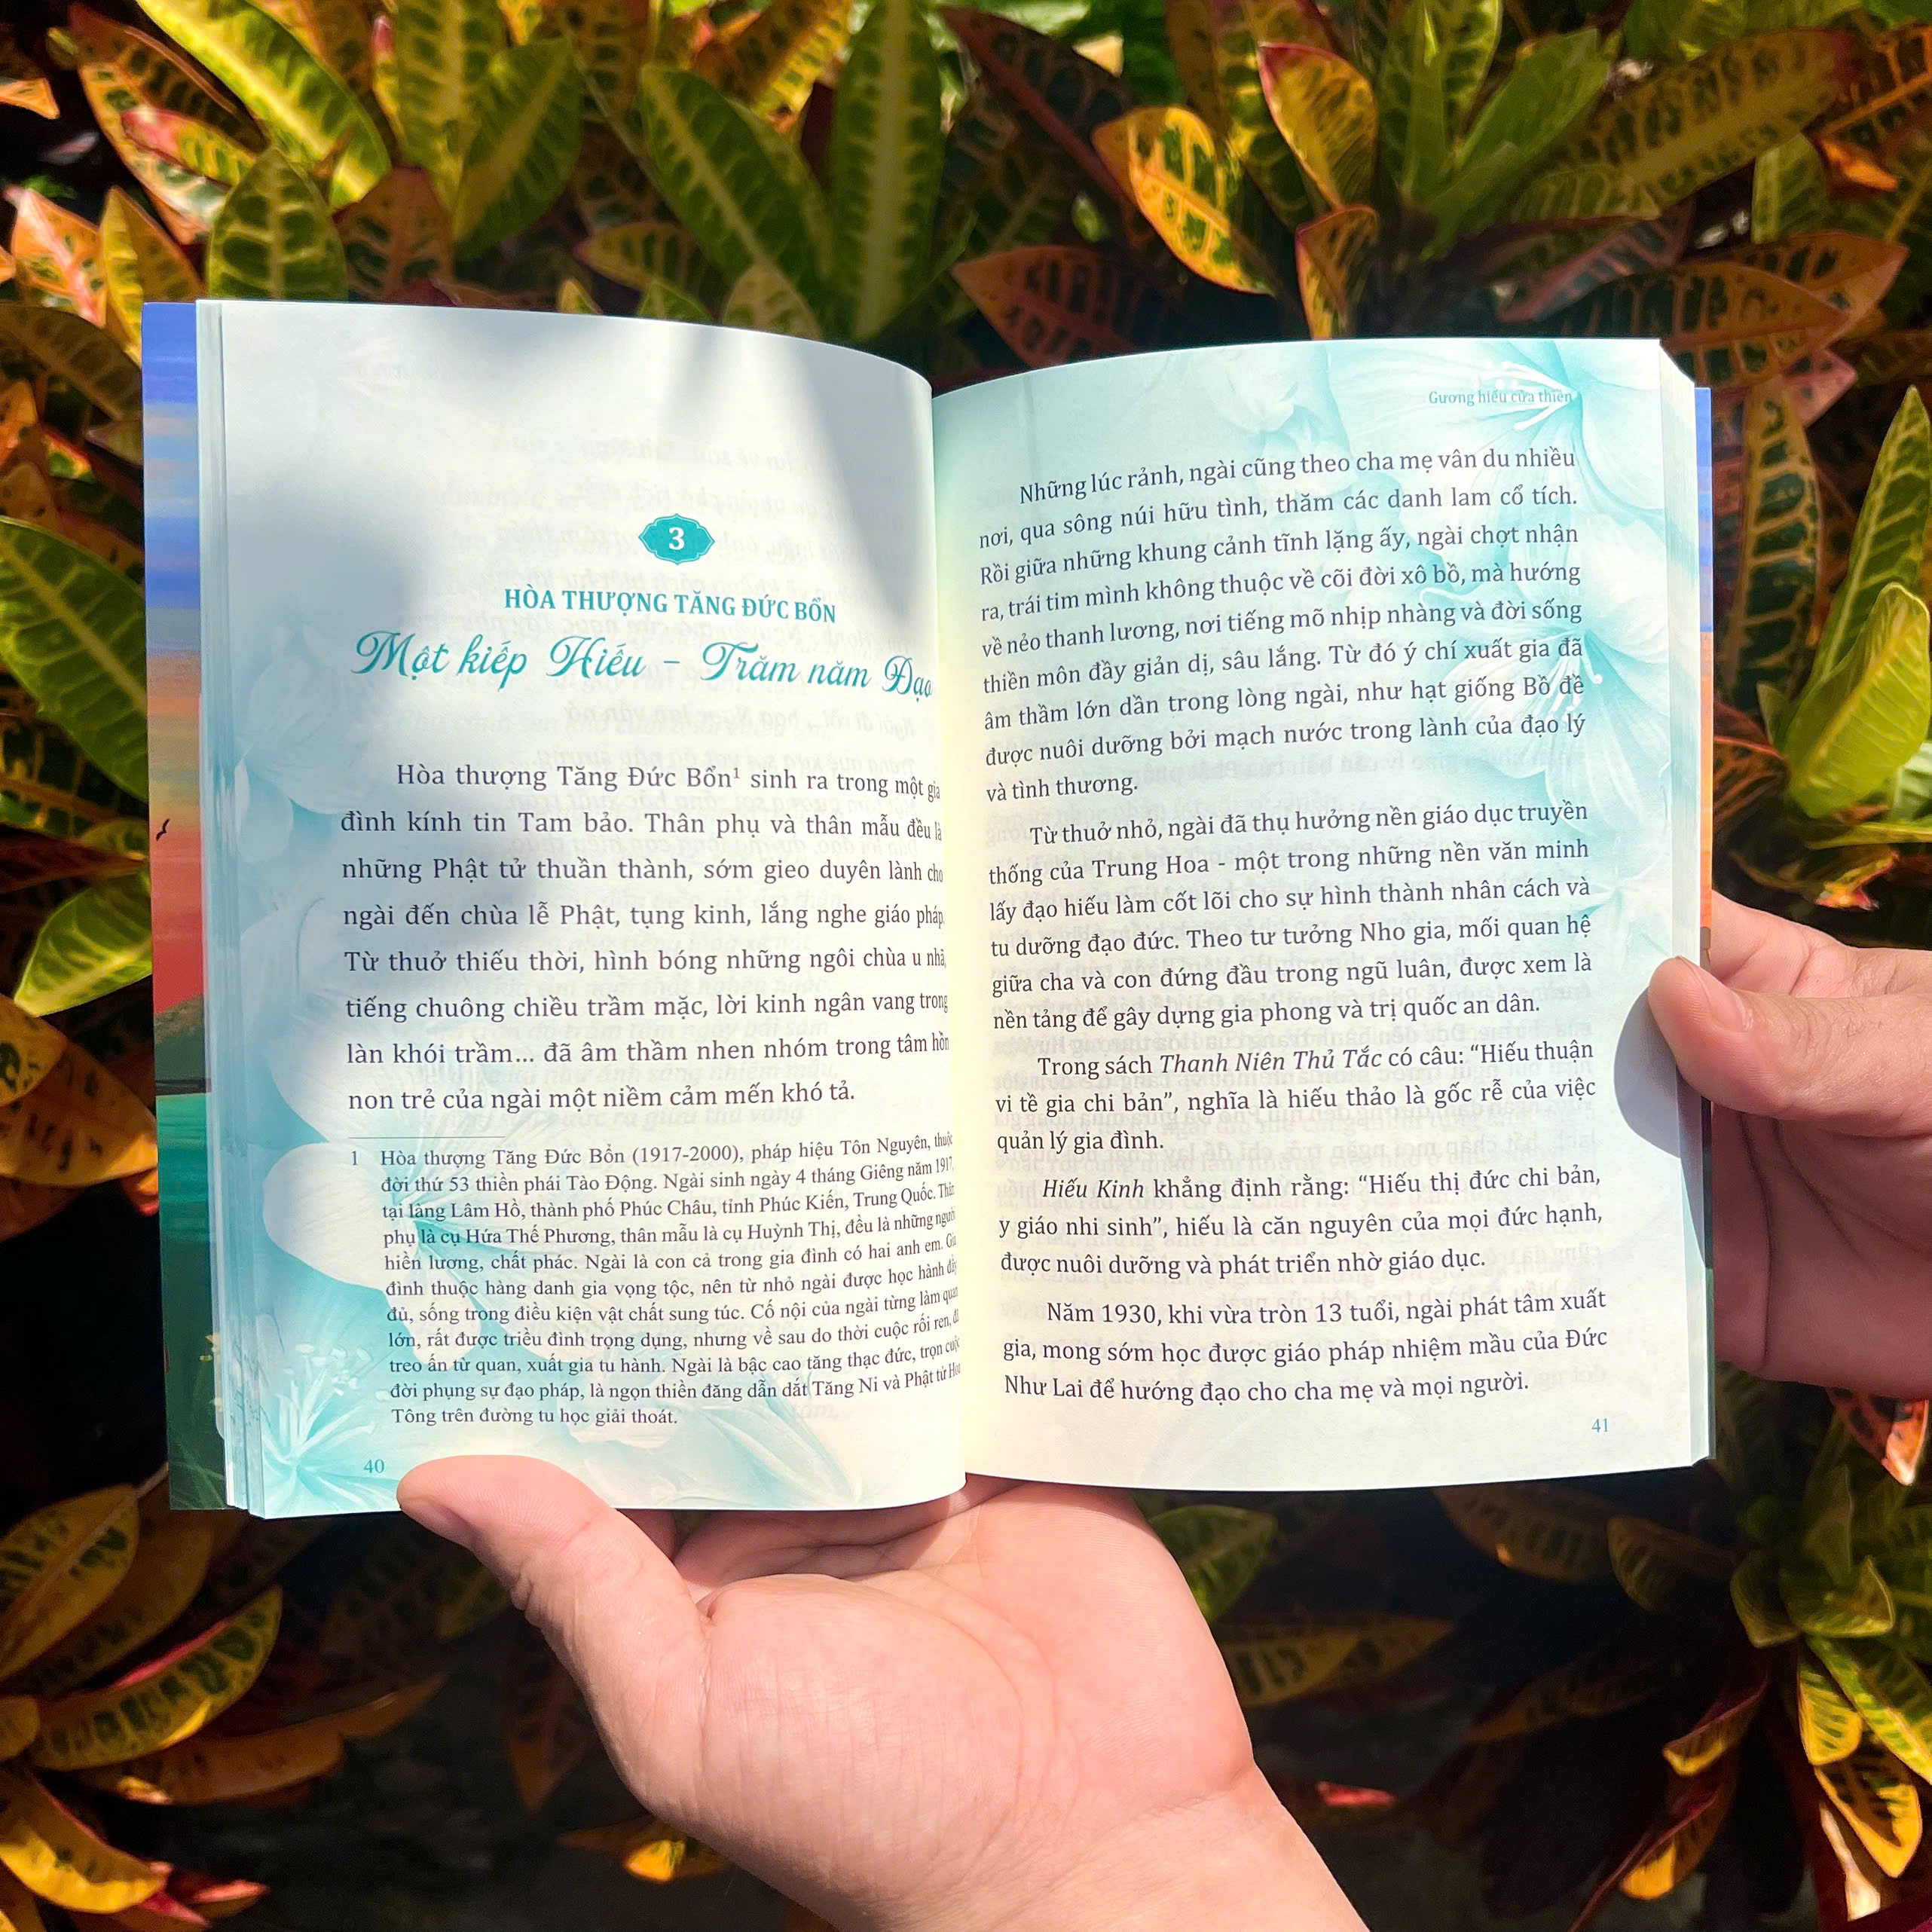 3
HÒA THƯỢNG TĂNG ĐỨC BỔN
Một kiếp Hiếu - Trăm năm Đạo
Hòa thượng Tăng Đức Bổn¹ sinh ra trong một gia
đình kính tin Tam bảo. Thân phụ và thân mẫu đều là
những Phật tử thuần thành, sớm gieo duyên lành cho
ngài đến chùa lễ Phật, tụng kinh, lắng nghe giáo pháp.
Từ thuở thiếu thời, hình bóng những ngôi chùa u nhã,
tiếng chuông chiều trầm mặc, lời kinh ngân vang trong
làn khói trầm... đã âm thầm nhen nhóm trong tâm hồn
non trẻ của ngài một niềm cảm mến khó tả.
1 Hòa thượng Tăng Đức Bổn (1917-2000), pháp hiệu Tôn Nguyên, thuộc
đời thứ 53 thiền phái Tào Động. Ngài sinh ngày 4 tháng Giêng năm 1917,
tại làng Lâm Hồ, thành phố Phúc Châu, tỉnh Phúc Kiến, Trung Quốc. Thân
phụ là cụ Hứa Thế Phương, thân mẫu là cụ Huỳnh Thị, đều là những người
hiền lương, chất phác. Ngài là con cả trong gia đình có hai anh em. Gia
đình thuộc hàng danh gia vọng tộc, nên từ nhỏ ngài được học hành đầy
đủ, sống trong điều kiện vật chất sung túc. Cố nội của ngài từng làm quan
lớn, rất được triều đình trọng dụng, nhưng về sau do thời cuộc rối ren, đã
treo ấn từ quan, xuất gia tu hành. Ngài là bậc cao tăng thạc đức, trọn cuộc
đời phụng sự đạo pháp, là ngọn thiền đăng dẫn dắt Tăng Ni và Phật tử Hoa
Tông trên đường tu học giải thoát.
40
Gương hiếu cửa thiền
Những lúc rảnh, ngài cũng theo cha mẹ vân du nhiều
nơi, qua sông núi hữu tình, thăm các danh lam cổ tích.
Rồi giữa những khung cảnh tĩnh lặng ấy, ngài chợt nhận
ra, trái tim mình không thuộc về cõi đời xô bồ, mà hướng
về nẻo thanh lương, nơi tiếng mõ nhịp nhàng và đời sống
thiền môn đầy giản dị, sâu lắng. Từ đó ý chí xuất gia đã
âm thầm lớn dần trong lòng ngài, như hạt giống Bồ đề
được nuôi dưỡng bởi mạch nước trong lành của đạo lý
và tình thương.
Từ thuở nhỏ, ngài đã thụ hưởng nền giáo dục truyền
thống của Trung Hoa - một trong những nền văn minh
lấy đạo hiếu làm cốt lõi cho sự hình thành nhân cách và
tu dưỡng đạo đức. Theo tư tưởng Nho gia, mối quan hệ
giữa cha và con đứng đầu trong ngũ luân, được xem là
nền tảng để gây dựng gia phong và trị quốc an dân.
Trong sách Thanh Niên Thủ Tắc có câu: “Hiếu thuận
vi tề gia chi bản”, nghĩa là hiếu thảo là gốc rễ của việc
quản lý gia đình.
Hiếu Kinh khẳng định rằng: “Hiếu thị đức chi bản,
y giáo nhi sinh”, hiếu là căn nguyên của mọi đức hạnh,
được nuôi dưỡng và phát triển nhờ giáo dục.
Năm 1930, khi vừa tròn 13 tuổi, ngài phát tâm xuất
gia, mong sớm học được giáo pháp nhiệm mầu của Đức
Như Lai để hướng đạo cho cha mẹ và mọi người.
41